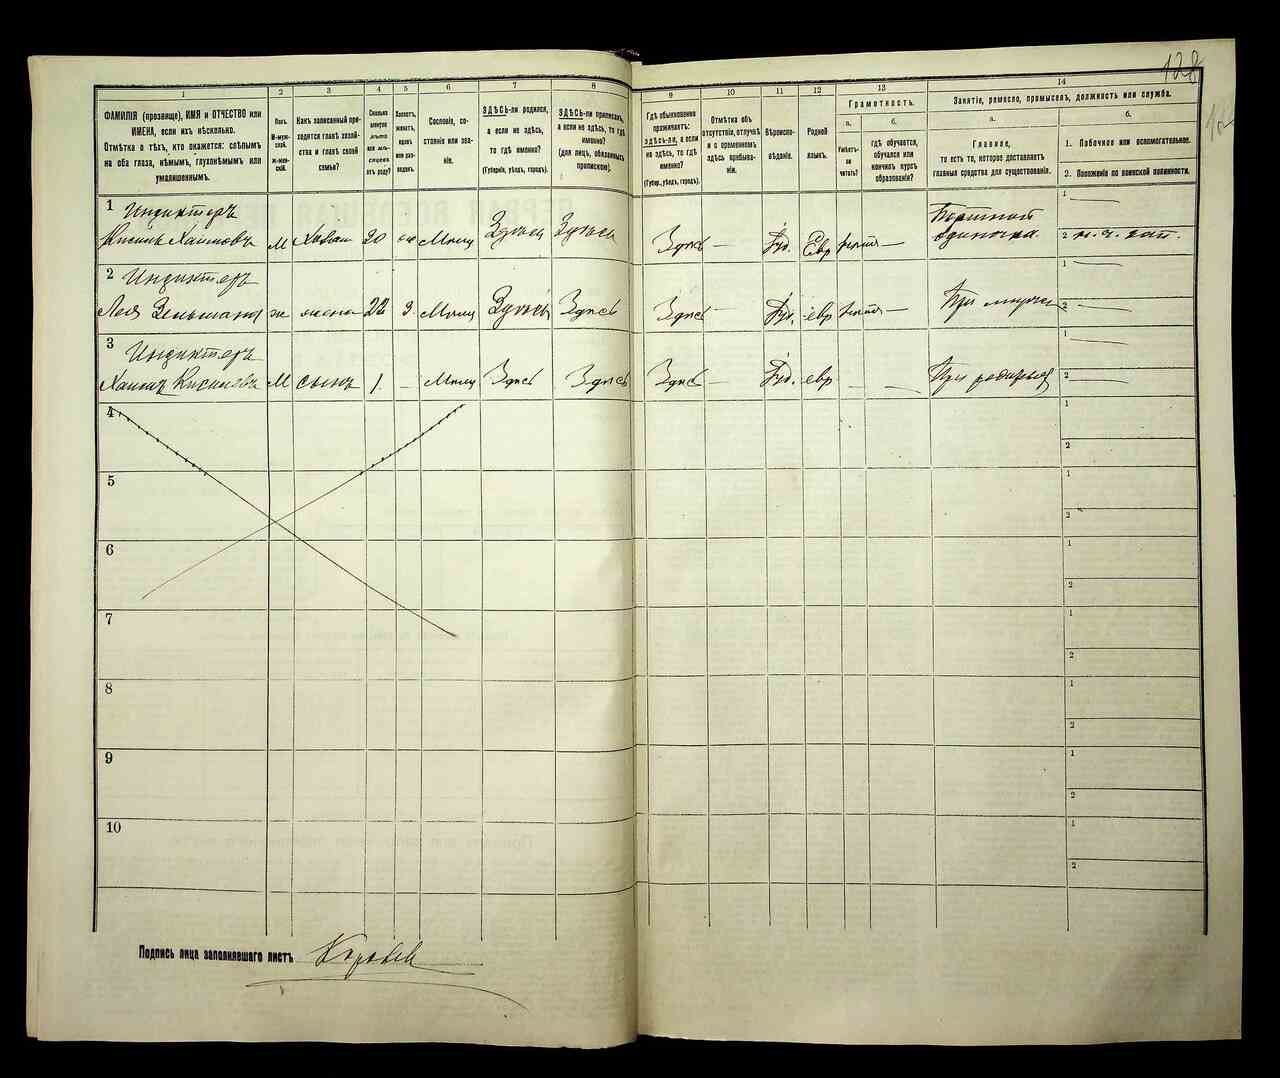 128
1
ФАМИЛІЯ (прозвище), ИМЯ и ОТЧЕСТВО или
ИМЕНА, если ихъ нѣсколько.
Отмѣтка о тѣхъ, кто окажется: слѣпымъ
на оба глаза, нѣмымъ, глухонѣмымъ или
умалишеннымъ.
2
Полъ.
М-муж-
ской.
Ж-жен-
скій.
3
Какъ записанный при-
ходится главѣ хозяй-
ства и главѣ своей
семьи?
4
Сколько
минуло
лѣтъ
или мѣ-
сяцевъ
отъ роду?
5
Холостъ,
женатъ,
вдовъ
или раз-
веденъ.
6
Сословіе, со-
стояніе или зва-
ніе.
7
ЗДѢСЬ-ли родился,
а если не здѣсь,
то гдѣ именно?
(Губернія, уѣздъ, городъ).
8
ЗДѢСЬ-ли приписанъ,
а если не здѣсь, то гдѣ
именно?
(для лицъ, обязанныхъ
припискою).
9
Гдѣ обыкновенно
проживаетъ:
здѣсь-ли, а если
не здѣсь, то гдѣ
именно?
(Губер., уѣздъ, городъ).
10
Отмѣтка объ
отсутствіи, отлучкѣ
и о временномъ
здѣсь пребыва-
ніи.
11
Вѣроиспо-
вѣданіе.
12
Родной
языкъ.
13
Грамотность.
а.
Умѣетъ-
ли
читать?
б.
гдѣ обучается,
обучался или
кончилъ курсъ
образованія?
14
Занятіе, ремесло, промыселъ, должность или служба.
а.
Главное,
то есть то, которое доставляетъ
главныя средства для существованія.
б.
1. Побочное или вспомогательное.
2. Положеніе по воинской повинности.
1 Индиктеръ
Хаимовъ М Хозяин 20 ж Мѣщ Здѣсь Здѣсь Здѣсь — Іуд. Евр —
Портной
одиночка
1 —
2
2 Индиктеръ
Лея Зельманов ж жена 22 З Мѣщ Здѣсь Здѣсь Здѣсь — Іуд. евр —
При мужѣ
1 —
2 —
3 Индиктеръ
Хаимъ М сынъ 1. – Мѣщ Здѣсь Здѣсь Здѣсь — Іуд. евр — —
При родителях
1 —
2 —
4
1
2
5
1
2
6
1
2
7
1
2
8
1
2
9
1
2
10
1
2
Подпись лица заполнявшаго листъ